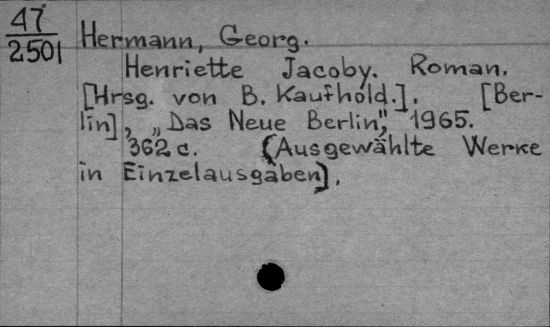 47
2501
Hermann, Georg.
Henriette Jacoby. Roman.
[Hrsg. von B. Kaufhold.]. [Ber-
lin], „Das Neue Berlin", 1965.
362 c. (Ausgewählte Werke
in Einzelausgaben).